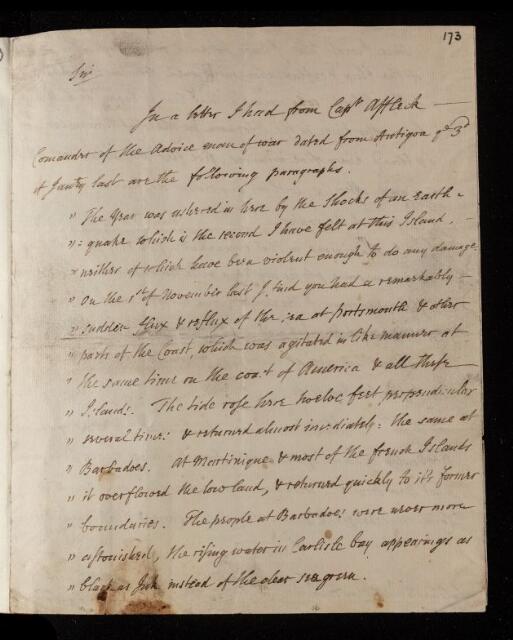 173
Sir
In a letter I had from Capt. Affleck —
Comander of the Advice man of war dated from Antigoa ye 3d
of Janry last are the following paragraphs.
" The Year was ushered in here by the Shocks of an earth-
" =quake which is the second I have felt at this Island, —
" neither of which have been violent enough to do any damage.
" On the 1st of November last I find you had a remarkably —
" sudden flux & reflux of the sea at Portsmouth & other
" parts of the Coast, which was agitated in like manner at
" the same time on the coast of America & all these
" Islands. The tide rose here twelve feet perpendicular
" several times & returned almost imediately: the same at
" Barbadoes. At Martinique & most of the french Islands
" it overflowed the low land, & returned quickly to it's former
" boundaries. The people at Barbadoes were never more
" astonished, the rising water in Carlisle bay appearing as
" black as Ink instead of the clear sea green.